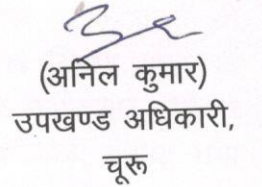 (अनिल कुमार)
उपखण्ड अधिकारी,
चूरू